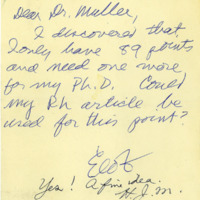 Dear Dr. Muller,
I discovered that
I only have 89 points
and need one more
for my Ph.D. Could
my Rh article be
used for this point?
Elof
Yes! A fine idea.
H.J.M.